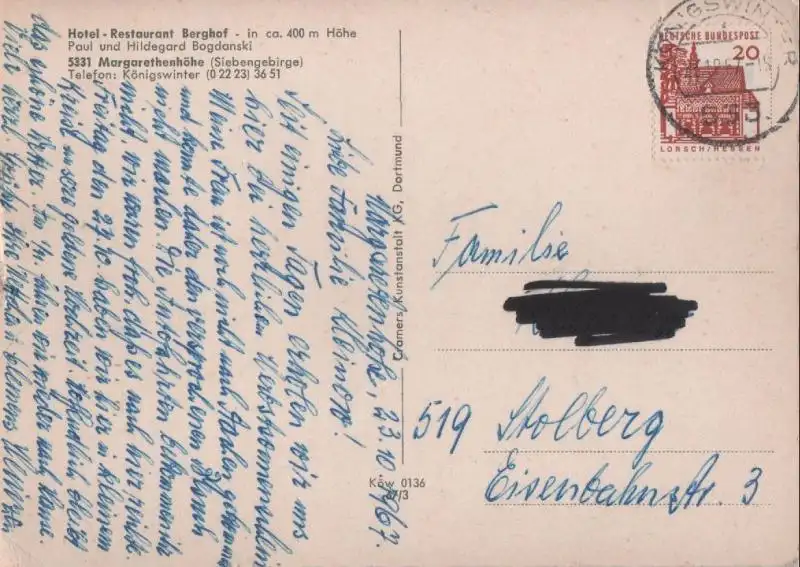 Hotel - Restaurant Berghof - in ca. 400 m Höhe
Paul und Hildegard Bogdanski
5331 Margarethenhöhe (Siebengebirge)
Telefon: Königswinter (0 22 23) 36 51
Margarethenhöhe, 23.10.1967.
Liebe Familie
Seit einigen Tagen erholen wir uns
hier bei herrlichem Herbstsonnenschein
Meine Frau ist noch nicht nach Aachen gekommen
und konnte daher den versprochenen Besuch
nicht machen. Die Autofahrten bekommen ihr
nicht, wir waren froh, daß es nach hier
Freitag den 27.10 haben wir hier in kleinem
Kreise unsere goldene Hochzeit. Hoffentlich bleibt
das schöne Wetter. Am fahren wir wieder nach Hause.
Viele herzl. Grüße Ihre
Cramers Kunstanstalt KG, Dortmund
Köw 0136
67/3
KÖNIGSWINTER
DEUTSCHE BUNDESPOST
20
LORSCH/HESSEN
Familie
519 Stolberg
Eisenbahnstr. 3